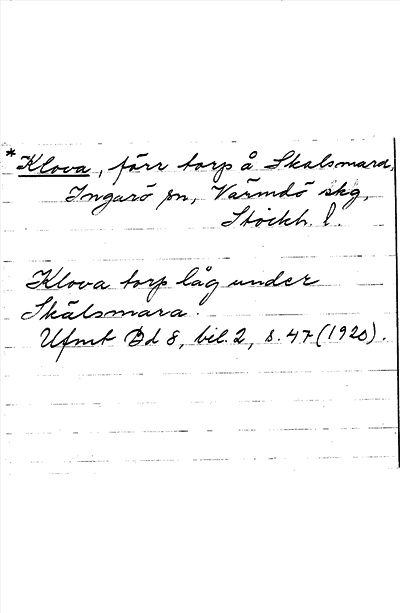 *Klova, förr torp å Skälsmara,
Ingarö sn, Värmdö skg,
Stockh. l.
Klova torp låg under
Skälsmara.
Ufmt Bd 8, bil. 2, s. 47 (1920).